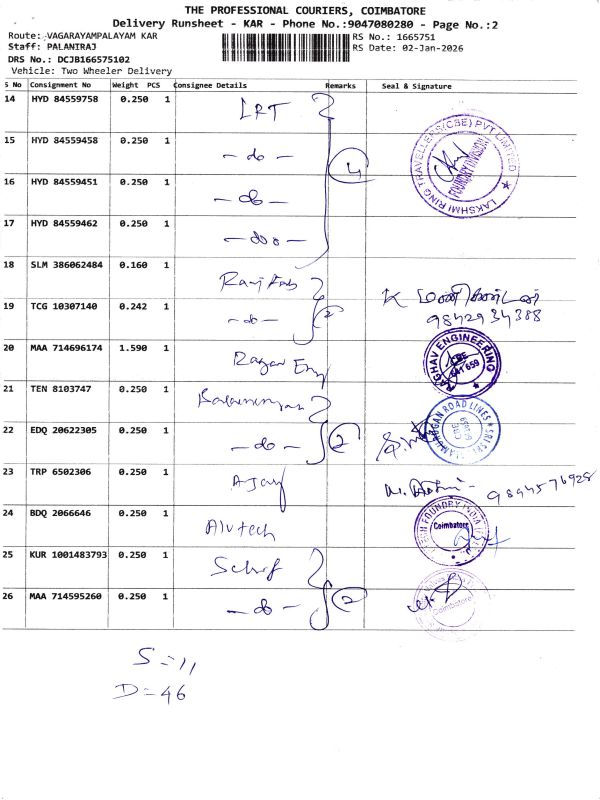 THE PROFESSIONAL COURIERS, COIMBATORE
Delivery Runsheet - KAR - Phone No.:9047080280 - Page No.:2
Route: VAGARAYAMPALAYAM KAR
RS No.: 1665751
Staff: PALANIRAJ
RS Date: 02-Jan-2026
DRS No.: DCJB166575102
Vehicle: Two Wheeler Delivery
S No Consignment No Weight PCS Consignee Details Remarks Seal & Signature
14 HYD 84559758 0.250 1 LRT
15 HYD 84559458 0.250 1 - do -
4
LAKSHMI RING TRAVELLERS (CBE) PVT LIMITED
FOUNDRY DIVISION
16 HYD 84559451 0.250 1 - do -
17 HYD 84559462 0.250 1 - do -
18 SLM 386062484 0.160 1
K மணிகண்டன்
19 TCG 10307140 0.242 1 - do - 2
9842934388
20 MAA 714696174 1.590 1 Ragav Eng
RAGHAV ENGINEERING
CBE
641 659
21 TEN 8103747 0.250 1
22 EDQ 20622305 0.250 1 - do - 2
ROAD LINES
CBE
23 TRP 6502306 0.250 1 Ajay
9894576928
24 BDQ 2066646 0.250 1 Alutech
FOUNDRY INDIA
Coimbatore
25 KUR 1001483793 0.250 1
26 MAA 714595260 0.250 1 - do - 2
Coimbatore
S = 11
D = 46